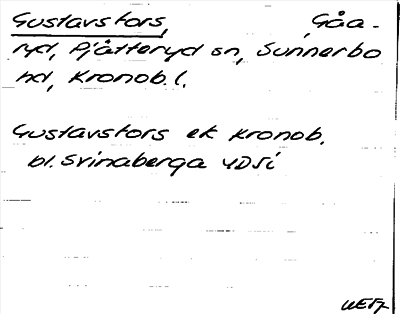 Gustavsfors, Gåa-
ryd, Pjätteryd sn, Sunnerbo
hd, Kronob. l.
Gustavsfors ek Kronob.
bl. Svinaberga 4D5i